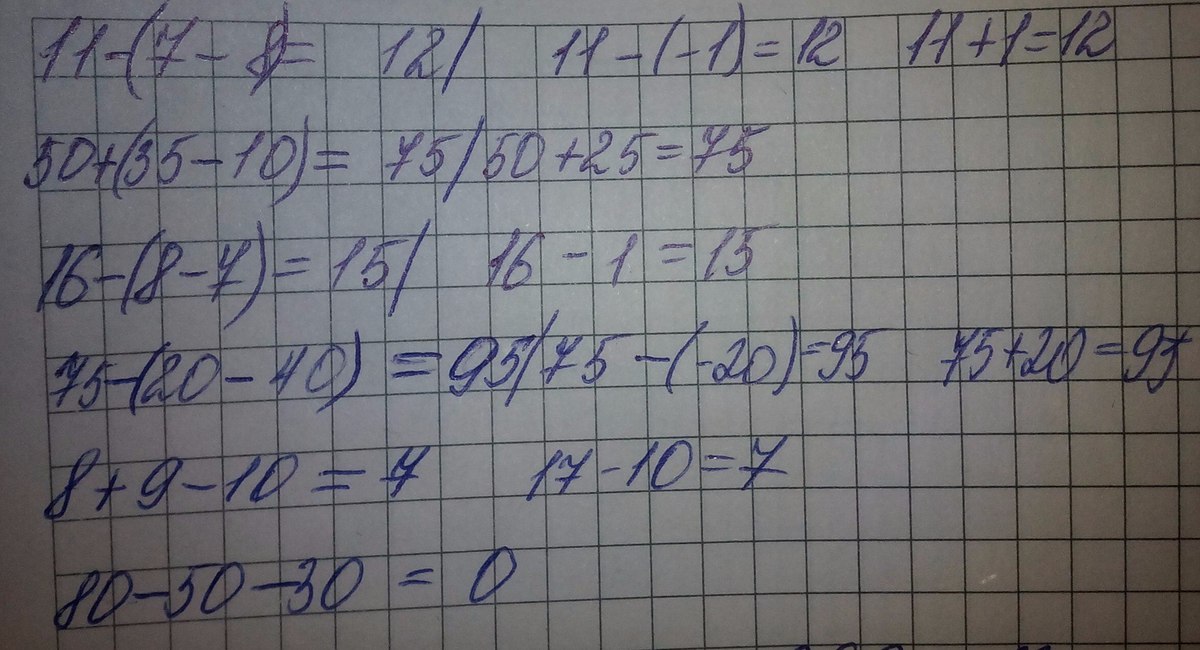 11-(7-8)= 12/ 11-(-1)=12 11+1=12
50+(35-10)= 75/50+25=75
16-(8-7)=15/ 16-1=15
75-(20-40)=95/75-(-20)=95 75+20=95
8+9-10=7 17-10=7
80-50-30=0